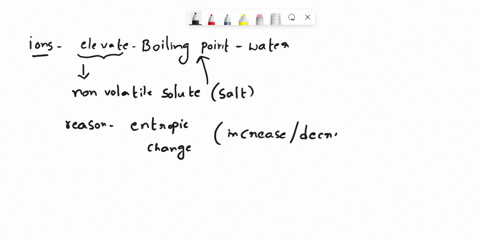 ions - elevate - Boiling point - water
non volatile solute (salt)
reason - entropic (increase/decr
change